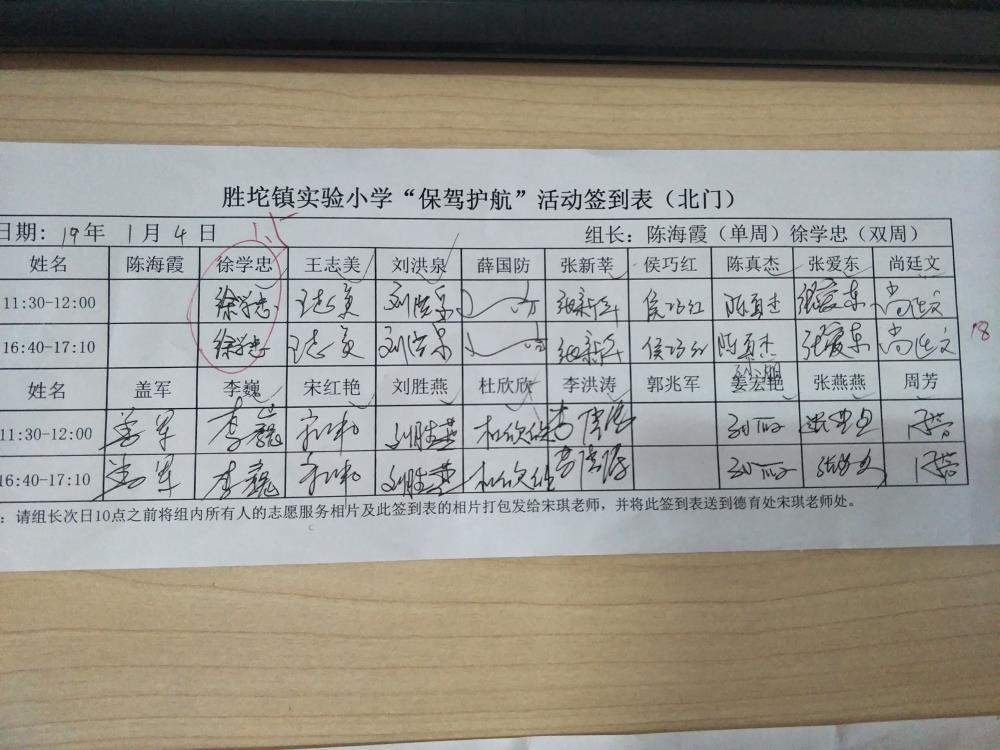 胜坨镇实验小学“保驾护航”活动签到表（北门）
日期: 19年 1月 4日 1.5 组长: 陈海霞（单周）徐学忠（双周）
姓名 陈海霞 徐学忠 王志美 刘洪泉 薛国防 张新莘 侯巧红 陈真杰 张爱东 尚廷文
11:30-12:00 徐学忠 王志美 刘洪泉 防 张新莘 侯巧红 陈真杰 张爱东 尚廷文
16:40-17:10 徐学忠 王志美 刘洪泉 防 张新莘 侯巧红 陈真杰 张爱东 尚廷文 18
姓名 盖军 李巍 宋红艳 刘胜燕 杜欣欣 李洪涛 郭兆军 姜宏艳 张燕燕 周芳
11:30-12:00 盖军 李巍 刘胜燕 杜欣欣 李洪涛 周芳
16:40-17:10 盖军 李巍 刘胜燕 杜欣欣 李洪涛 周芳
: 请组长次日10点之前将组内所有人的志愿服务相片及此签到表的相片打包发给宋琪老师，并将此签到表送到德育处宋琪老师处。